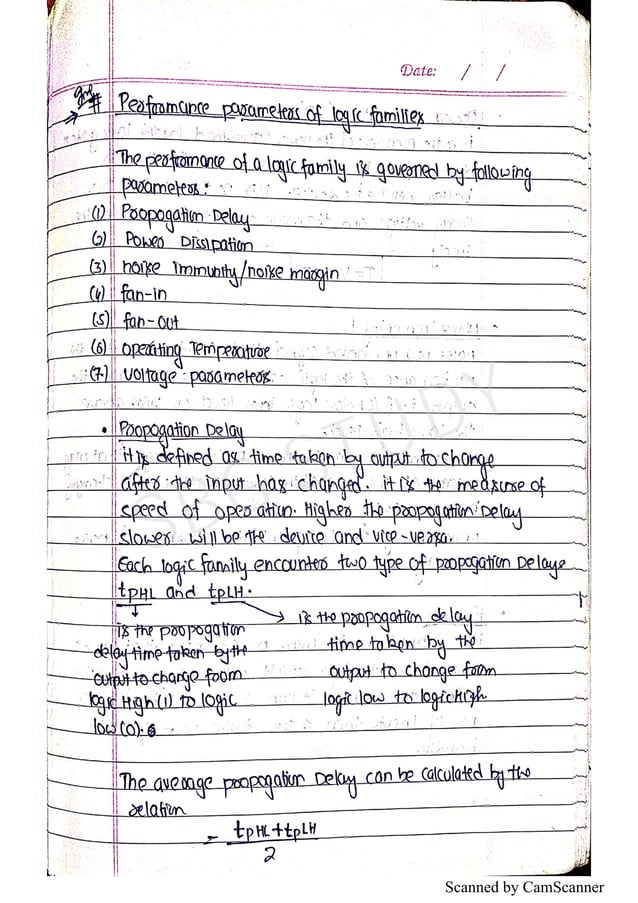 Date: / /
# Performance parameters of logic families
The performance of a logic family is governed by following
parameters:
(1) Propogation Delay
(2) Power Dissipation
(3) noise immunity/noise margin
(4) fan-in
(5) fan-out
(6) operating Temperature
(7) voltage parameters
• Propogation Delay
it is defined as time taken by output to change
after the input has changed. it is the measure of
speed of operation. Higher the propogation Delay
slower will be the device and vice-versa.
Each logic family encounters two type of propogation Delays
tpHL and tpLH.
is the propogation
delay time taken by the
output to change from
logic High (1) to logic
low (0).
→ is the propogation delay
time taken by the
output to change from
logic low to logic High
The average propogation Delay can be calculated by the
relation
= tpHL+tpLH
2
SBC STUDY
Scanned by CamScanner